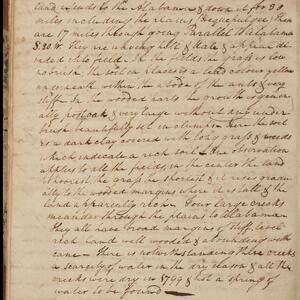 land extends to the Alabama & down it for 30
miles including the plains
are 17 miles through going parallel to Alabama
S. 20. W. they are waving hill & dale & appear di-
vided into fields. In the fields the grass is low
no brush. the soil in places is a lead colour yellow
underneath within the abode of the ants & very
stiff. In the wooded parts the growth is gener-
ally post oak & very large without any under-
brush beautifully set in clumps. Here the soil
is a dark clay covered with long grass & weeds
which indicate a rich soil. The observation
applies to all the fields, in the center the land
is poorest, the grass the shortest & it rises gradu-
ally to the wooded margins where it is tall & the
land apparently rich. Four large creeks
meander through the plains to Alabama
they all have broad margins of stiff level
rich land well wooded & abounding with
cane. there is notwithstanding these creeks
a scarcity of water in the dry season & all the
creeks were dry in 1799 & not a spring of
water to be found